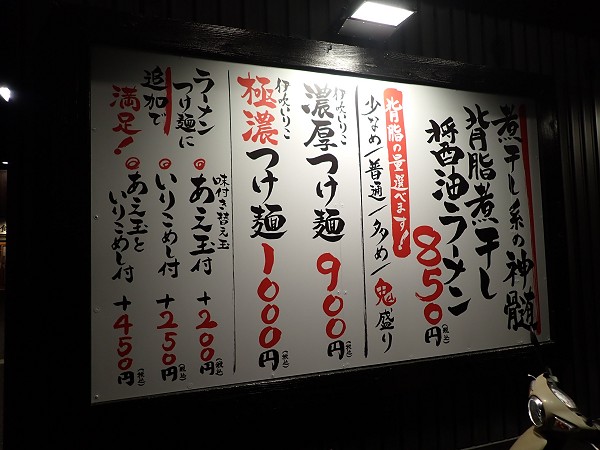 煮干し系の神髄
背脂煮干し
醤油ラーメン
850円(税込)
背脂の量選べます!
少なめ/普通/多め/鬼盛り
伊吹いりこ
濃厚つけ麺 900円(税込)
伊吹いりこ
極濃つけ麺 1000円(税込)
ラーメン
つけ麺に
追加で
満足!
味付き替え玉
あえ玉付 +200円(税込)
いりこめし付 +250円(税込)
あえ玉と
いりこめし付 +450円(税込)